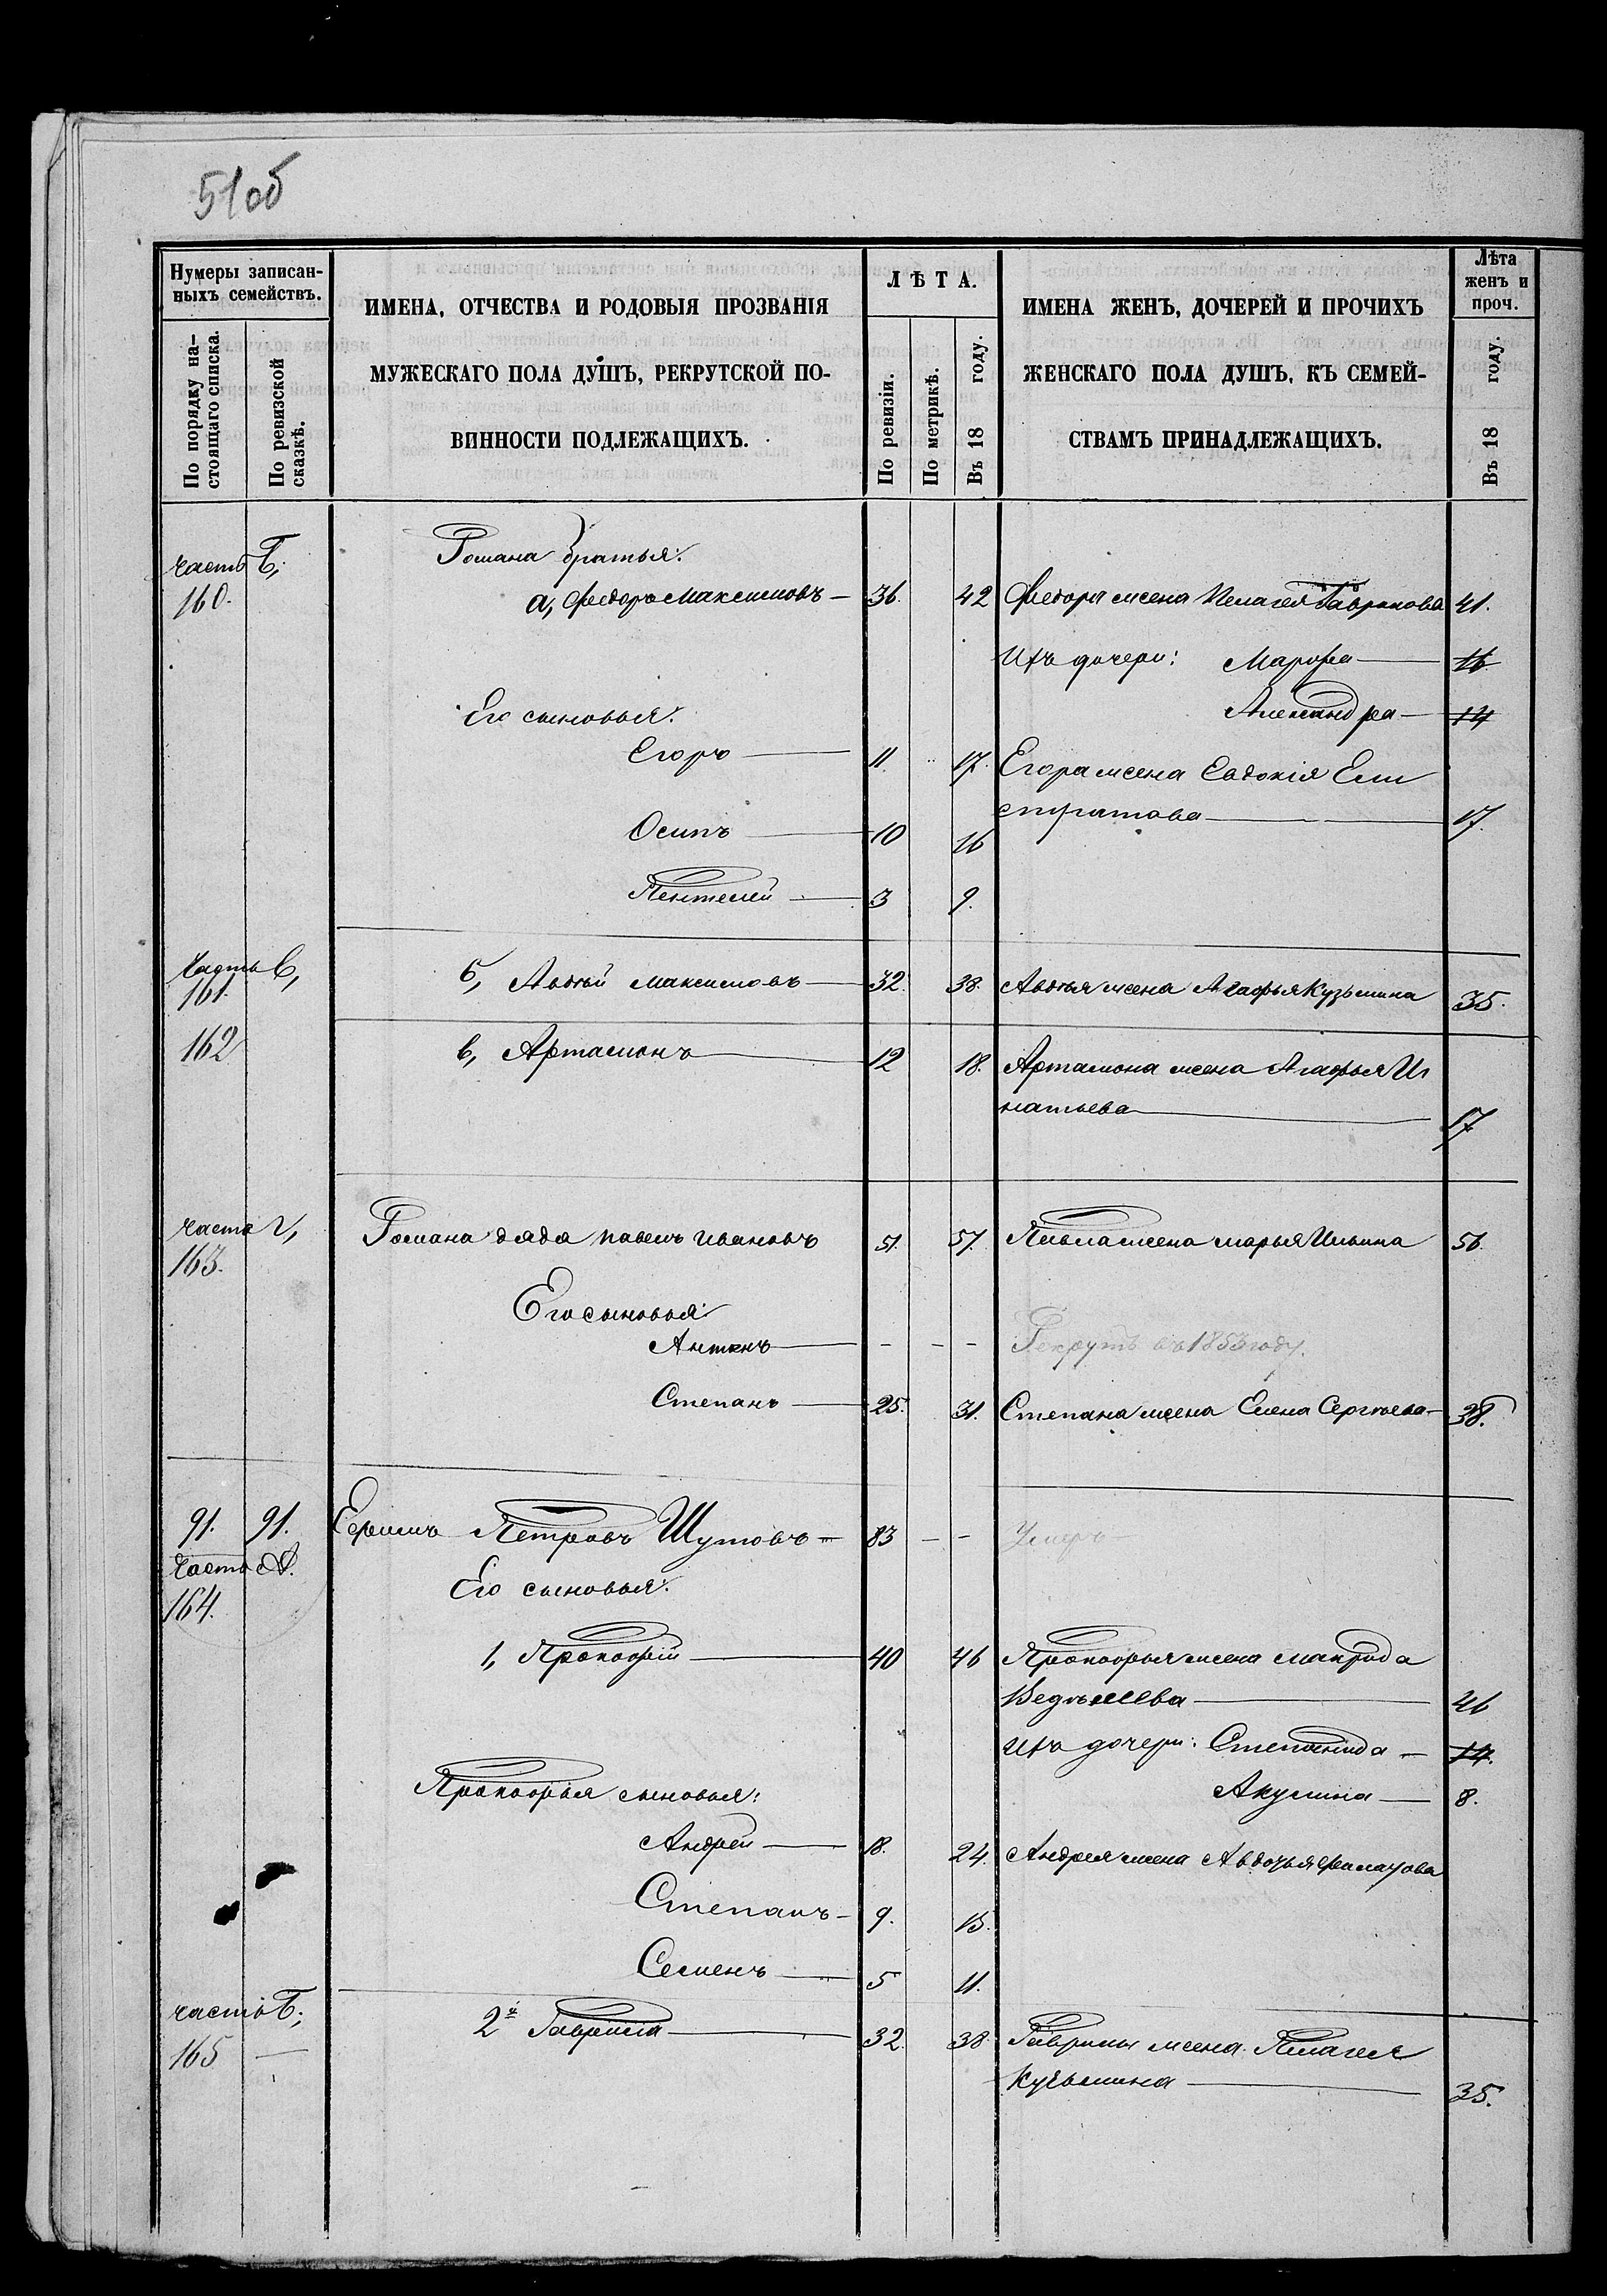 51об
Нумеры записан-
ныхъ семействъ.
По порядку на-
стоящаго списка.
По ревизской
сказкѣ.
ИМЕНА, ОТЧЕСТВА И РОДОВЫЯ ПРОЗВАНІЯ
МУЖЕСКАГО ПОЛА ДУШЪ, РЕКРУТСКОЙ ПО-
ВИННОСТИ ПОДЛЕЖАЩИХЪ.
ЛѢТА.
По ревизіи.
По метрикѣ.
Въ 18 году.
ИМЕНА ЖЕНЪ, ДОЧЕРЕЙ И ПРОЧИХЪ
ЖЕНСКАГО ПОЛА ДУШЪ, КЪ СЕМЕЙ-
СТВАМЪ ПРИНАДЛЕЖАЩИХЪ.
Лѣта
женъ и
проч.
Въ 18 году.
часть Б,
160.
Романа братья:
а, Федоръ Максимовъ — 36. 42 Федора жена Пелагея Гаврилова 41.
Ихъ дочери: Марфа — 16
Александра — 14
Его сыновья:
Егоръ — 11. 17. Егора жена Евдокія Ели
стратова — 17.
Осипъ — 10 16
Пентелей — 3 9.
Часть В,
161.
б, Авдей Максимовъ — 32. 38. Авдея жена Агафья Кузьмина 35.
162 в, Артамонъ — 12 18. Артамона жена Агафья Иг
натьева — 17
часть Г,
163.
Романа дядя Павелъ Ивановъ 51. 57. Павла жена Марья Ильина 56.
Его сыновья:
Антонъ — - - - Рекрутъ въ 1853 году.
Степанъ — 25. 31. Степана жена Елена Сергѣева — 38.
91. 91. Ефимъ Петровъ Шутовъ — 83 — - Умеръ
Часть А.
164.
Его сыновья:
1, Прокофій — 40 46 Прокофья жена Макрида
46
Ихъ дочери: Степанида — 14.
Прокофья сыновья: Акулина — 8.
Андрей — 18. 24. Андрея жена Авдотья
Степанъ — 9. 15.
Семенъ — 5 11.
часть Б;
165 —
2й Гаврила — 32. 38. Гаврилы жена Пелагея
Кузьмина — 35.